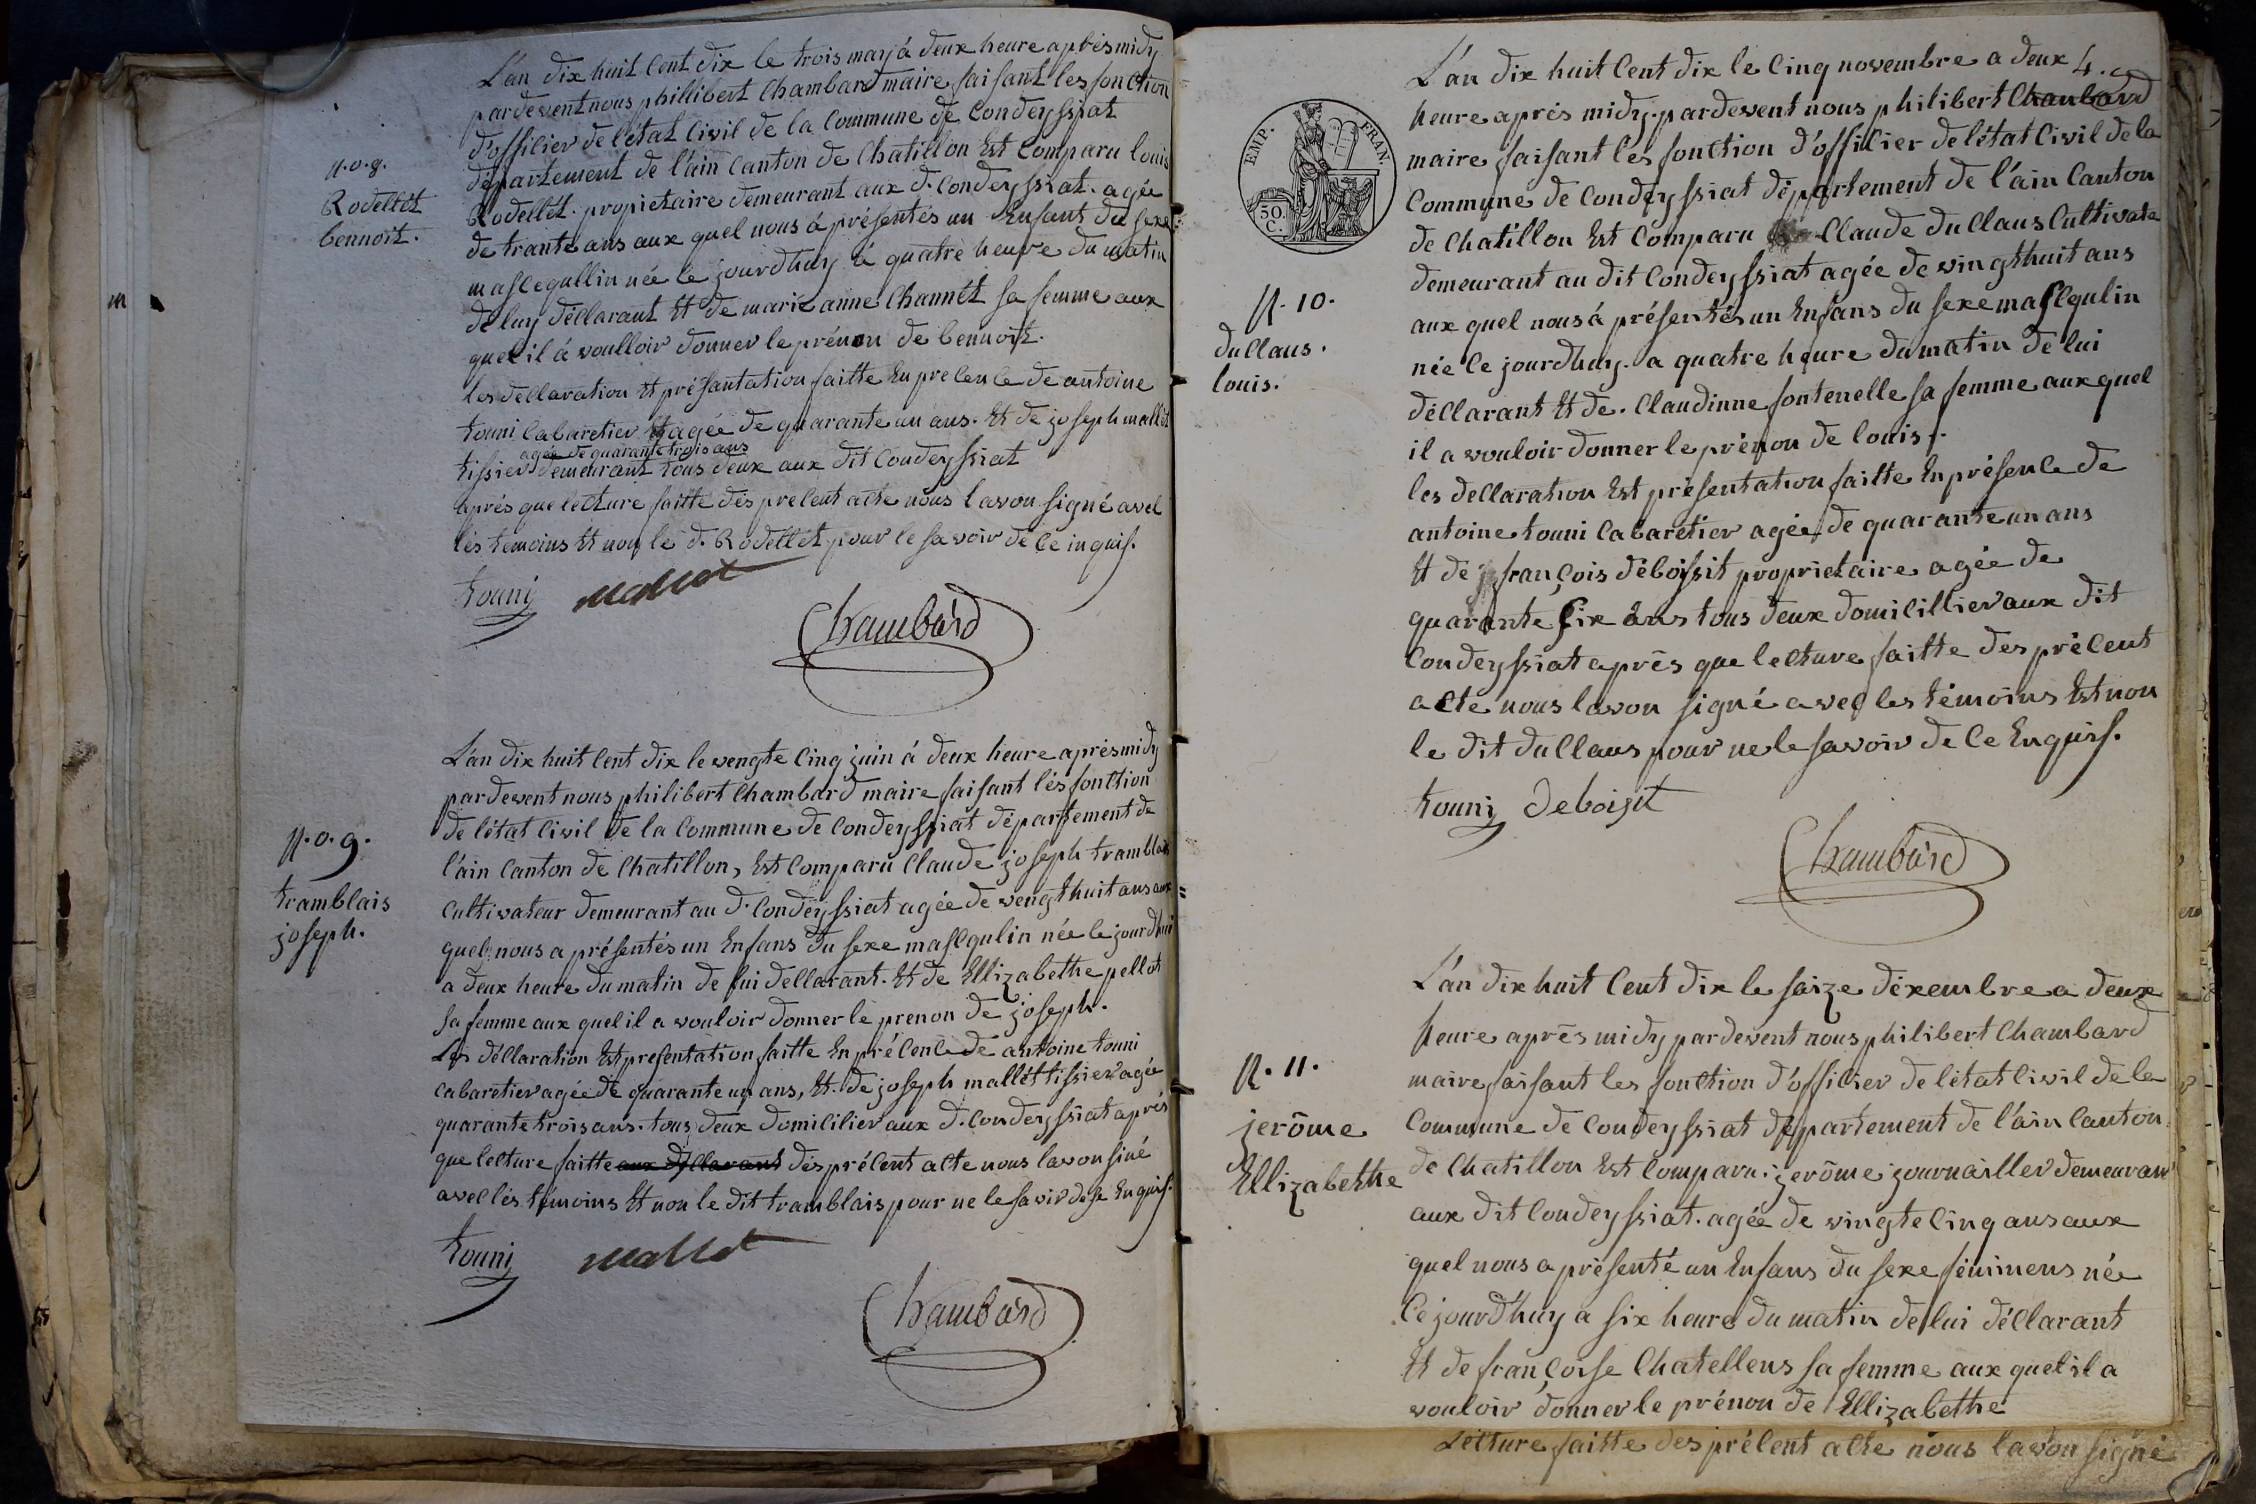 L'an dix huit cent dix le trois may à deux heure après midy
pardevent nous phillibert Chambard maire faisant les fonction
d'officier de létat Civil de la Commune de Condeyssiat
département de l'ain Canton de Chatillon Est Comparu louis
Rodellét. propietaire demeurant aux d. Condeyssiat. agée
de trante ans aux quel nous à présentés un Enfant du sexe
mascqullin née le jourdhuy à quatre heure du matin
de luy déclarant Et de marie anne Channét sa femme aux
quel il à voulloir donner le prénon de bennoit.
les declaration Et présantation faitte En presence de antoine
touni Cabaretier agée de quarante un ans. Et de joseph mallét
agée de quarante trois ans
tissier demeurant tous deux aux dit Condeyssiat
après que lecture faitte dès precent acte nous lavon signé avec
lès temoins Et non le d. Rodellét pour le savoir de ce inquis.
touni mallet
Chambard
n.o.9.
Rodellét
bennoit.
L'an dix huit Cent dix le vengte cinq juin à deux heure après midy
pardevent nous philibert Chambard maire faisant lès fonction
de létat Civil de la Commune de Condeyssiat département de
l'ain Canton de Chatillon, Est Comparu Claude joseph tramblais
Cultivateur demeurant au d. Condeyssiat agée de vengt huit ans aux =
quel nous a présentés un Enfans du sexe mascqulin née le jourdhui
a deux heure du matin de lui declarant. Et de Ellizabethe pellot
sa femme aux quel il a vouloir donner le prenon de joseph.
Les déclaration Est presentation faitte En présence de antoine touni
Cabaretier agée de quarante un ans, Et. de joseph mallét tissier agée
quarante trois ans. tous deux domicilier aux d. Condeyssiat après
que lecture faitte aux déclarant dès précent acte nous lavon siné
avec lès témoins Et non le dit tramblais pour ne le savir de se Enquis.
touni mallet
Chambard
n.o.9.
tramblais
joseph.
4.
L'an dix huit Cent dix le Cinq novembre a deux
heure après midy. pardevent nous philibert Chambard
maire faisant lès fonction d'officier de létat Civil de la
Commune de Condeyssiat département de l'ain Canton
de Chatillon Est Comparu Claude duClaus Cultivate
demeurant au dit Condeyssiat agée de vingt huit ans
aux quel nous à présentés un Enfans du sexe mascqulin
née le jourdhuy. a quatre heure du matin de lui
déclarant Et de. Claudinne fontenelle sa femme aux quel
il a vouloir donner le prénon de louis.
les declaration Est présentation faitte En présence de
antoine touni Cabarétier agée de quarante un ans
Et de françois déboissit proprietaire agée de
quarante six ans tous deux domicillier aux dit
Condeyssiat après que lecture faitte des précent
acte nous lavon signé avec les témoins Est non
le dit duClaus pour ne le savoir de ce Enquis.
touni Deboisit
Chambard
EMP. FRAN.
50. C.
N. 10.
duClaus.
louis.
L'an dix huit Cent dix le saize déxembre a deux
heure après midy pardevent nous philibert Chambard
maire faisant les fonction d'officier de létat Civil de la
Commune de Condeyssiat département de l'ain Canton
de Chatillon Est Comparu. jerôme journailler demeuran
aux dit Condeyssiat. agée de vingte Cinq ans aux
quel nous a présenté un Enfans du sexe féninens née
Ce jourd'huy a six heure du matin de lui déclarant
Et de françoise Chatellens sa femme aux quel il a
vouloir donner le prénon de Ellizabethe
Lecture faitte des précent acte nous lavon signé
N. 11.
jerôme
Ellizabethe